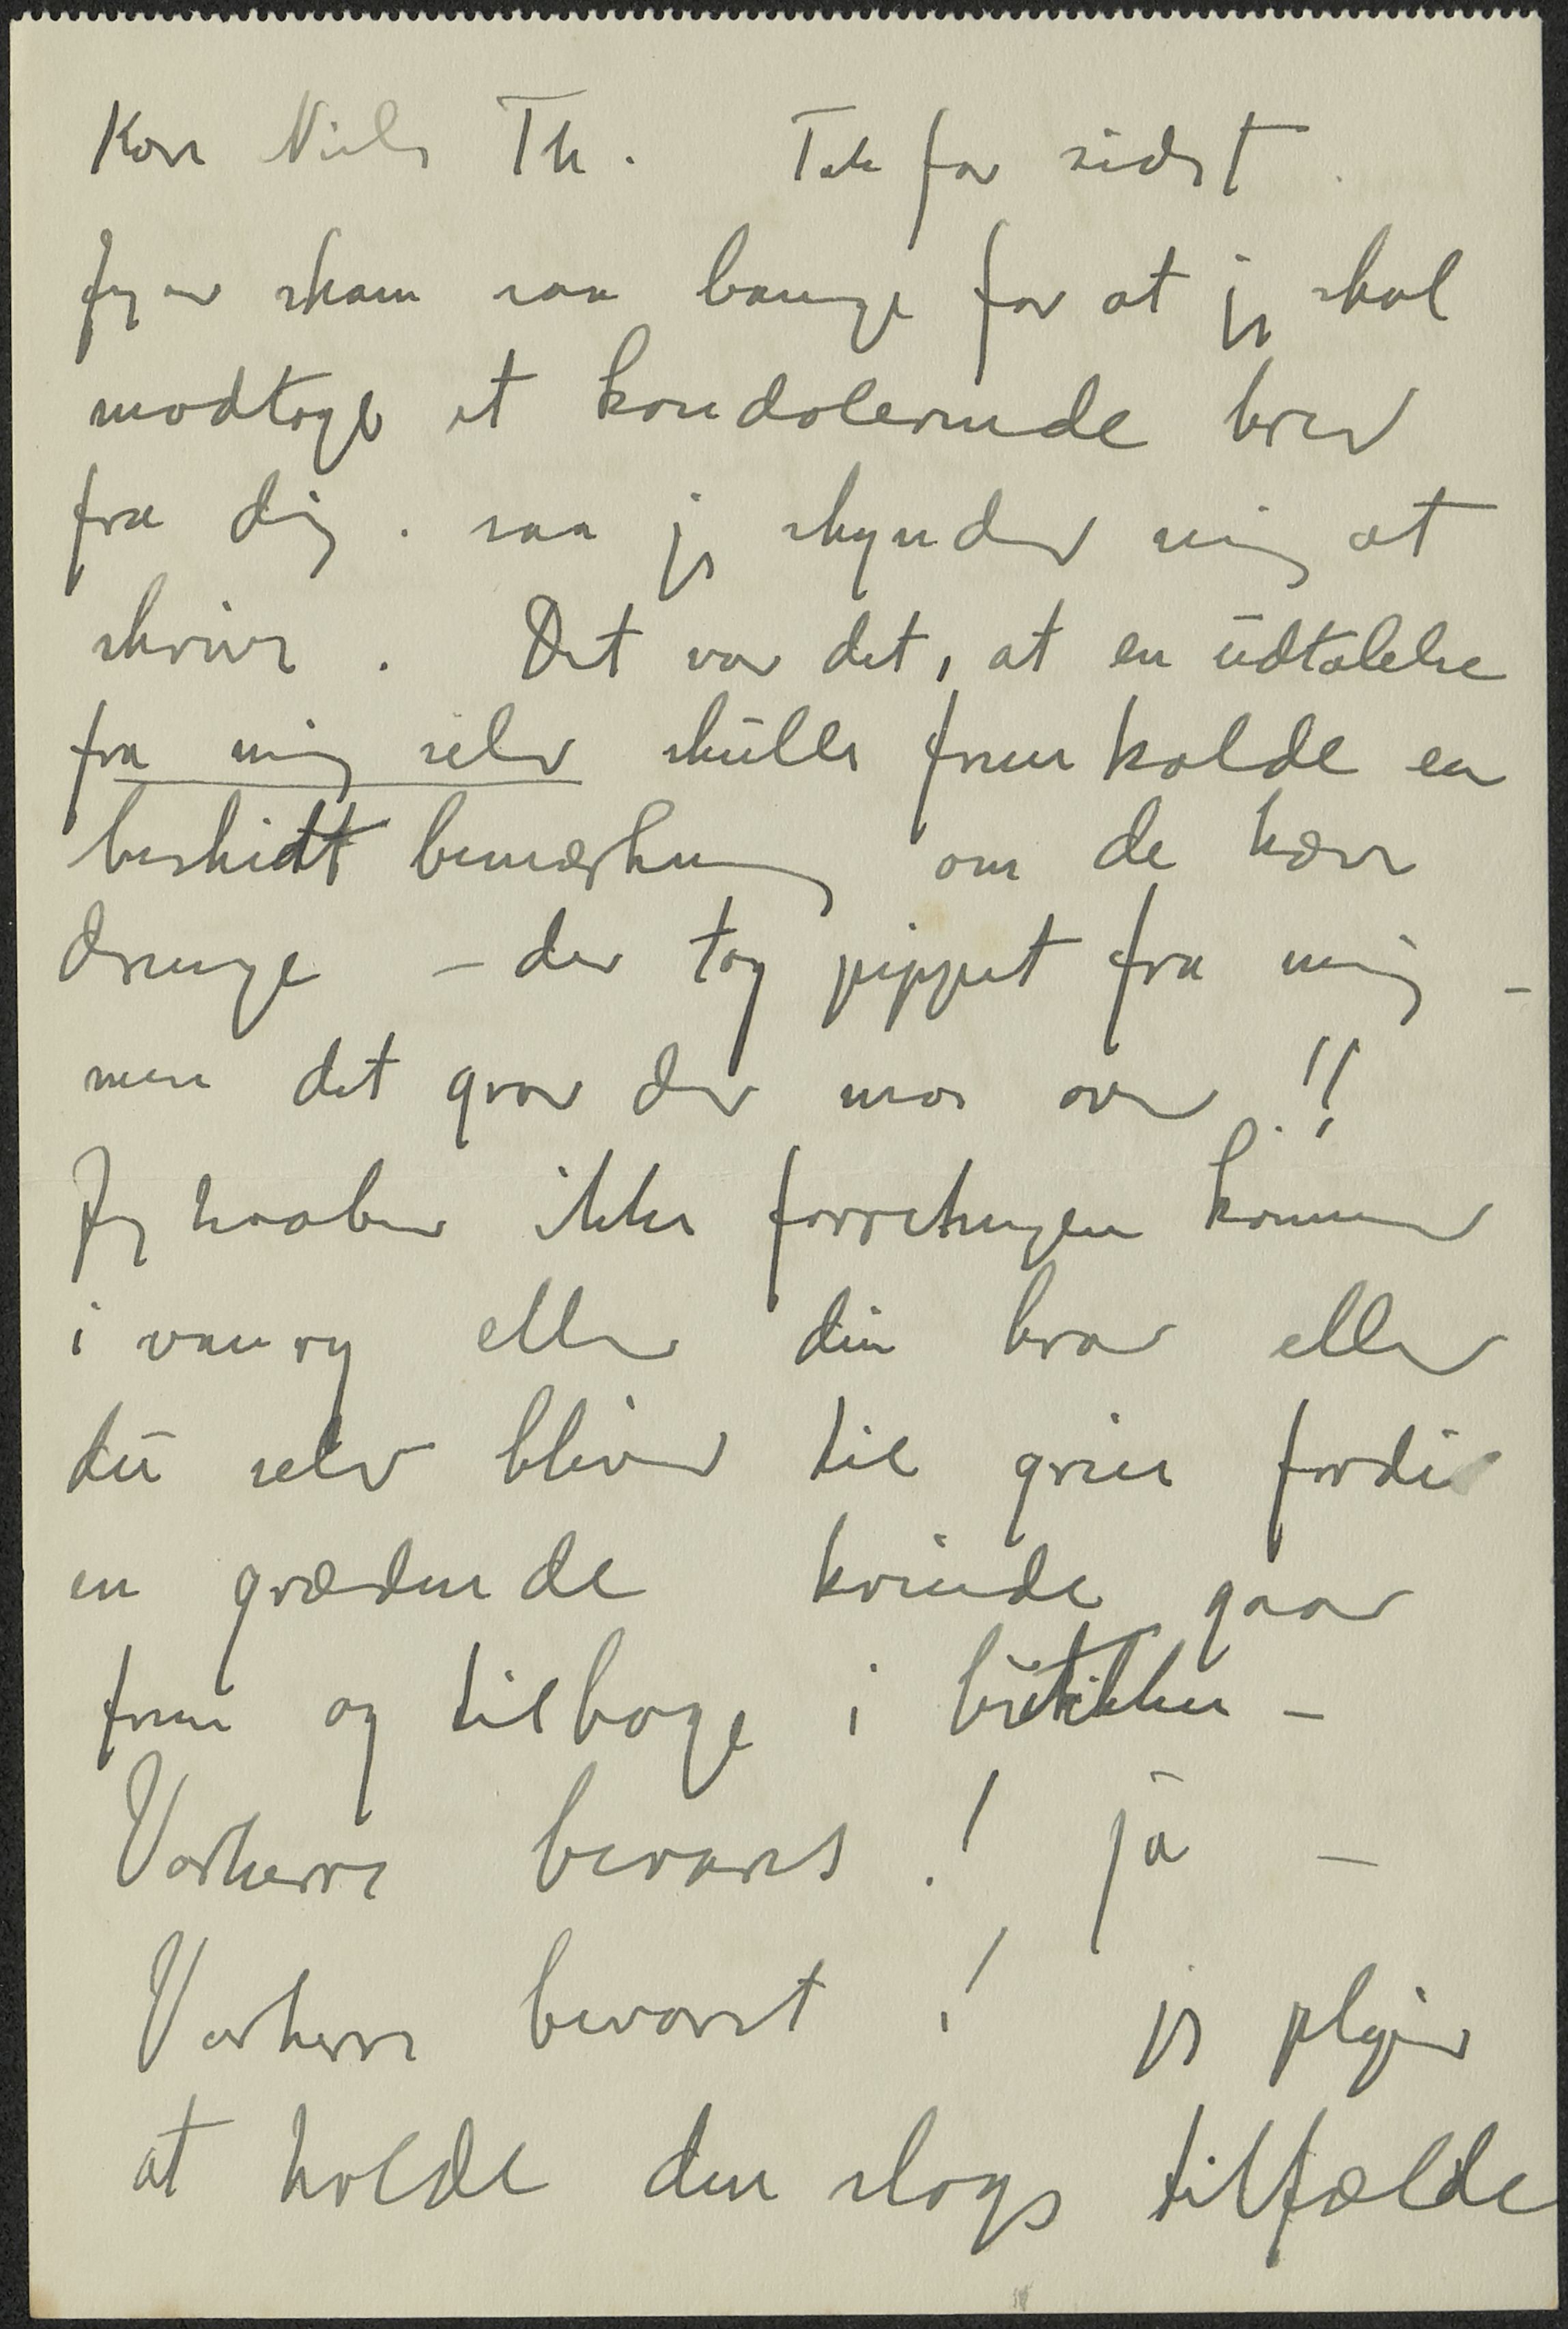 Kære Niels Th. Tak for sidst.
Jeg er skam saa bange for at jeg skal
modtage et kondolerende brev
fra dig. saa jeg skynder mig at
skrive. Det var det, at en udtalelse
fra mig selv skulle fremkalde en
beskidt bemærkning om de kære
drenge – der tog pippet fra mig –
men det gror der mos over!!
Jeg haaber ikke forretningen kommer
i vanry eller din bror eller
du selv bliver til grin fordi
en grædende kvinde gaar
frem og tilbage i butikken –
Vorherre bevares! ja –
Vorherre bevaret! jeg plejer
at holde den slags tilfælde